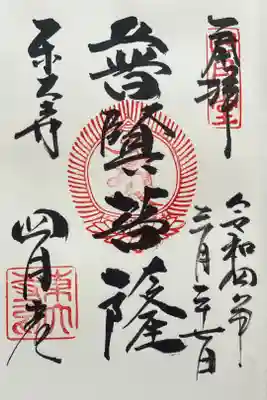 奉拝
令和四年
三月二十七日
普賢菩薩
東大寺
四月堂